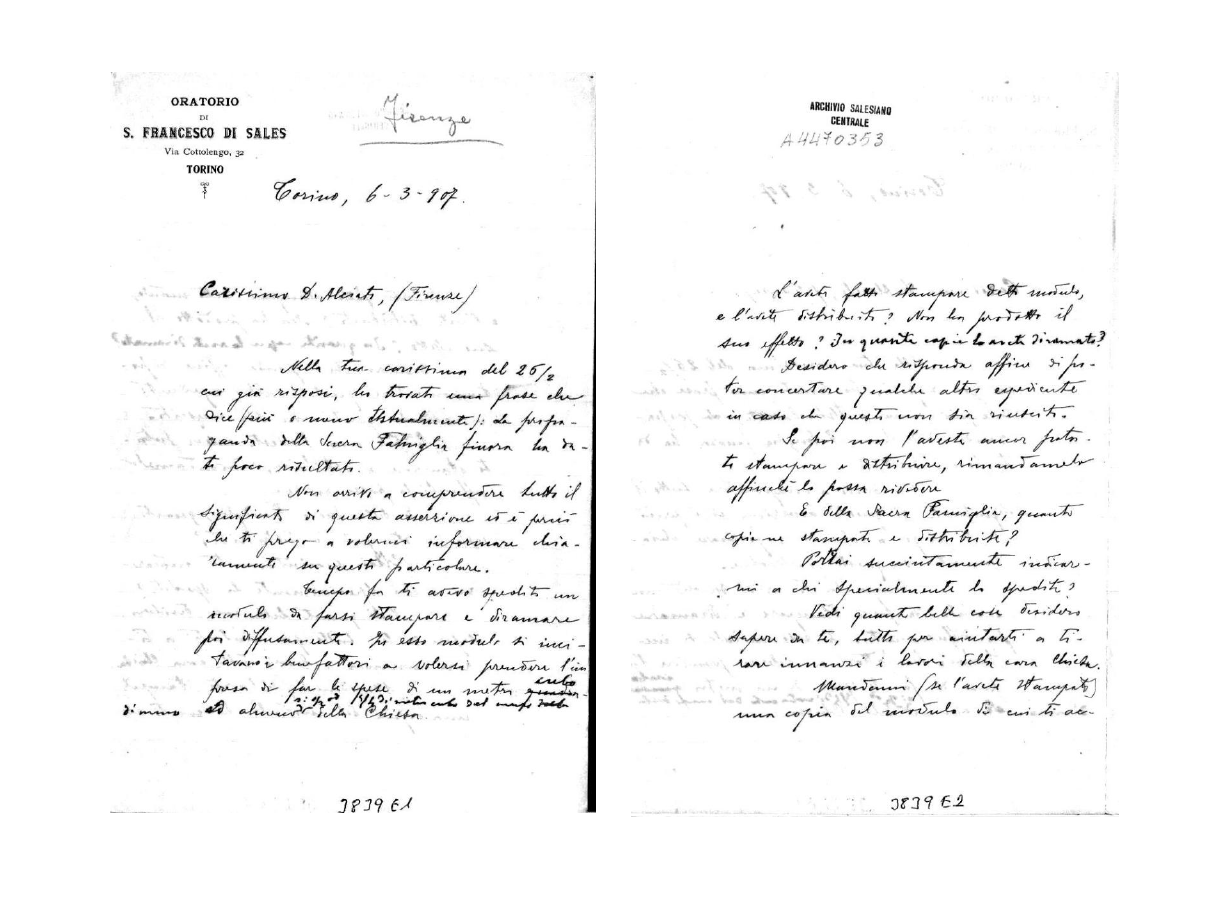 ORATORIO
DI
S. FRANCESCO DI SALES
Via Cottolengo, 32
TORINO
Firenze
Torino, 6-3-907.
Carissimo D. Alciati, (Firenze)
Nella tua carissima del 26/2
cui già risposi, ho trovato una frase che
dice (più o meno testualmente): La propa-
ganda della Sacra Famiglia finora ha da-
to poco risultato.
Non arrivo a comprendere tutto il
significato di questa asserzione ed è perciò
che ti prego a volermi informare chia-
ramente su questo particolare.
Tempo fa ti avevo spedito un
modulo da farsi stampare e diramare
poi diffusamente. In esso modulo si invi-
tavano i benefattori a volersi prendere l'im
presa di far le spese di un metro cubo
di meno ed almeno della Chiesa
3839 E1
ARCHIVIO SALESIANO
CENTRALE
A4470353
L'avete fatto stampare detto modulo,
e l'avete distribuito? Non ha prodotto il
suo effetto? In quante copie lo avete diramato?
Desidero che risponda affine di po-
ter concertare qualche altro espediente
in caso che questo non sia riuscito.
Se poi non l'aveste ancor fatto
stampare e distribuire, rimandamelo
affinchè lo possa rivedere
E della Sacra Famiglia, quante
copie ne stampate e distribuite?
Potrai succintamente indicar-
mi a chi specialmente lo spedite?
Vedi quante belle cose desidero
sapere da te, tutto per aiutarti a ti-
rare innanzi i lavori della cara Chiesa.
Mandami (se l'avete stampato)
una copia del modulo di cui ti ac-
3839 E2